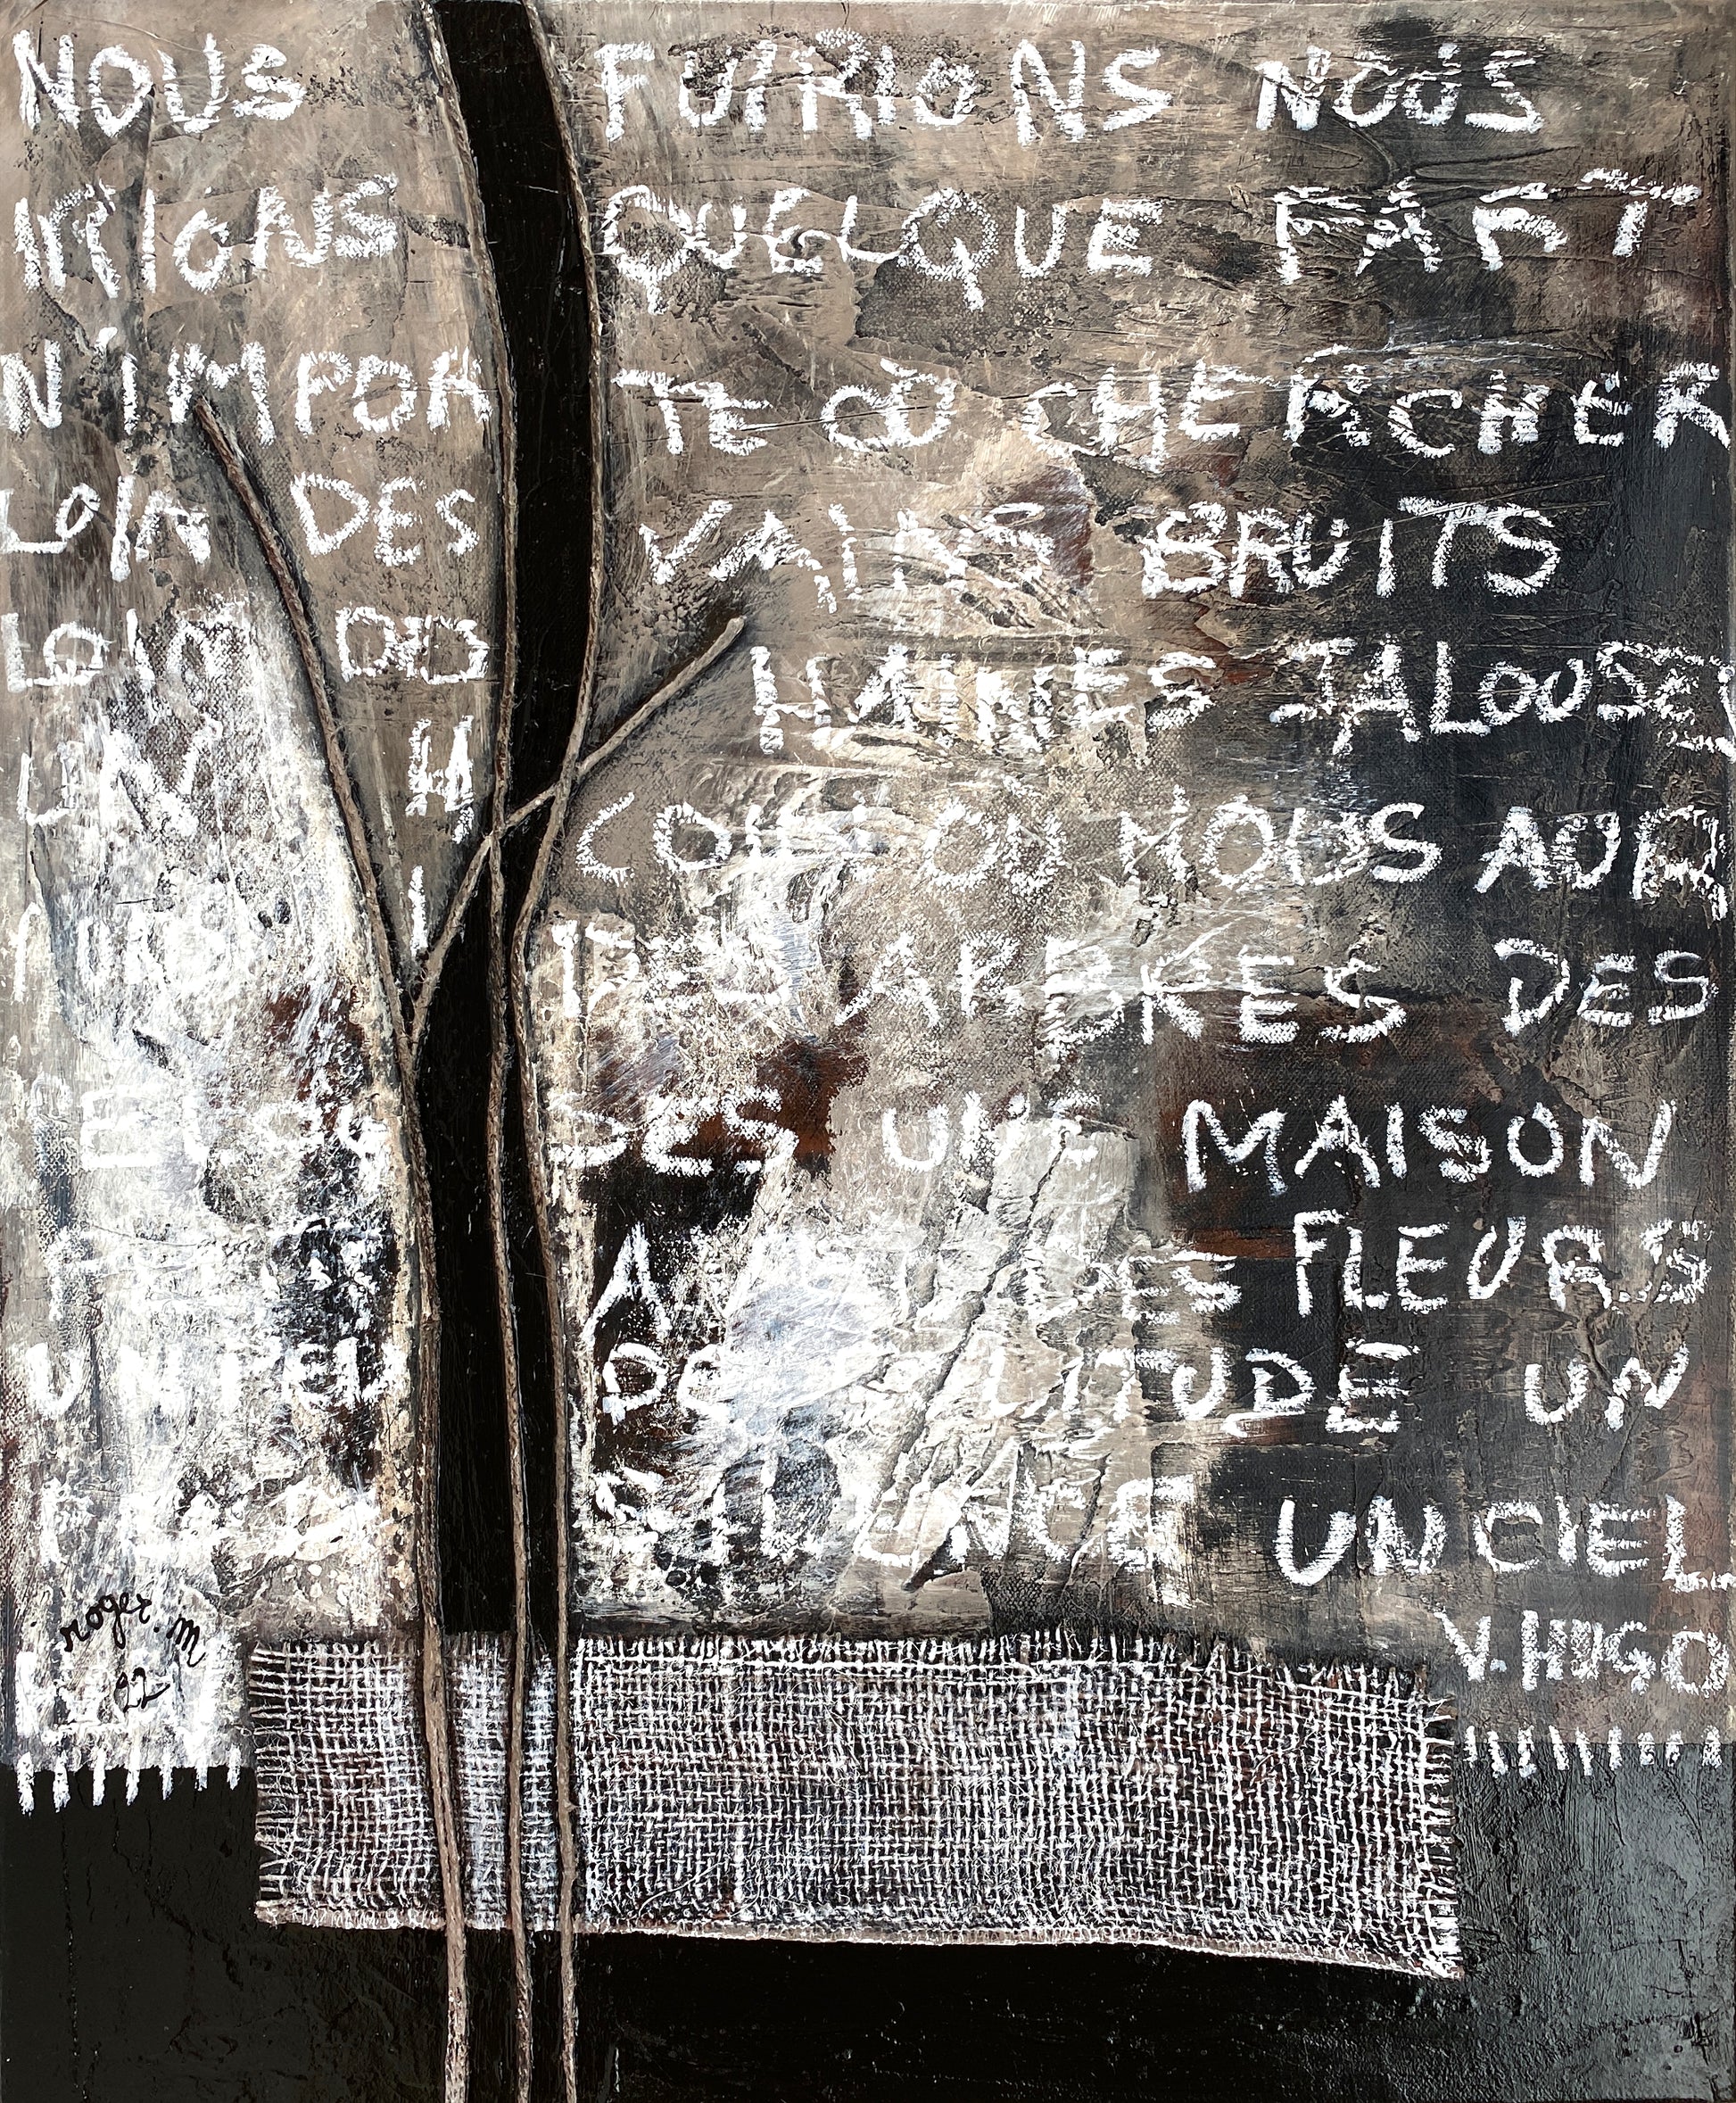 NOUS FUIRIONS NOUS
IRIONS QUELQUE PART
N'IMPORTE OÙ CHERCHER
LOIN DES VAINS BRUITS
LOIN DES HAINES JALOUSES
UN COIN OÙ NOUS AUR
IONS DES ARBRES DES
DES UNE MAISON
A DES FLEURS
UN PEU DE SOLITUDE UN
PEU SILENCE UN CIEL
V. HUGO
roger.m
22